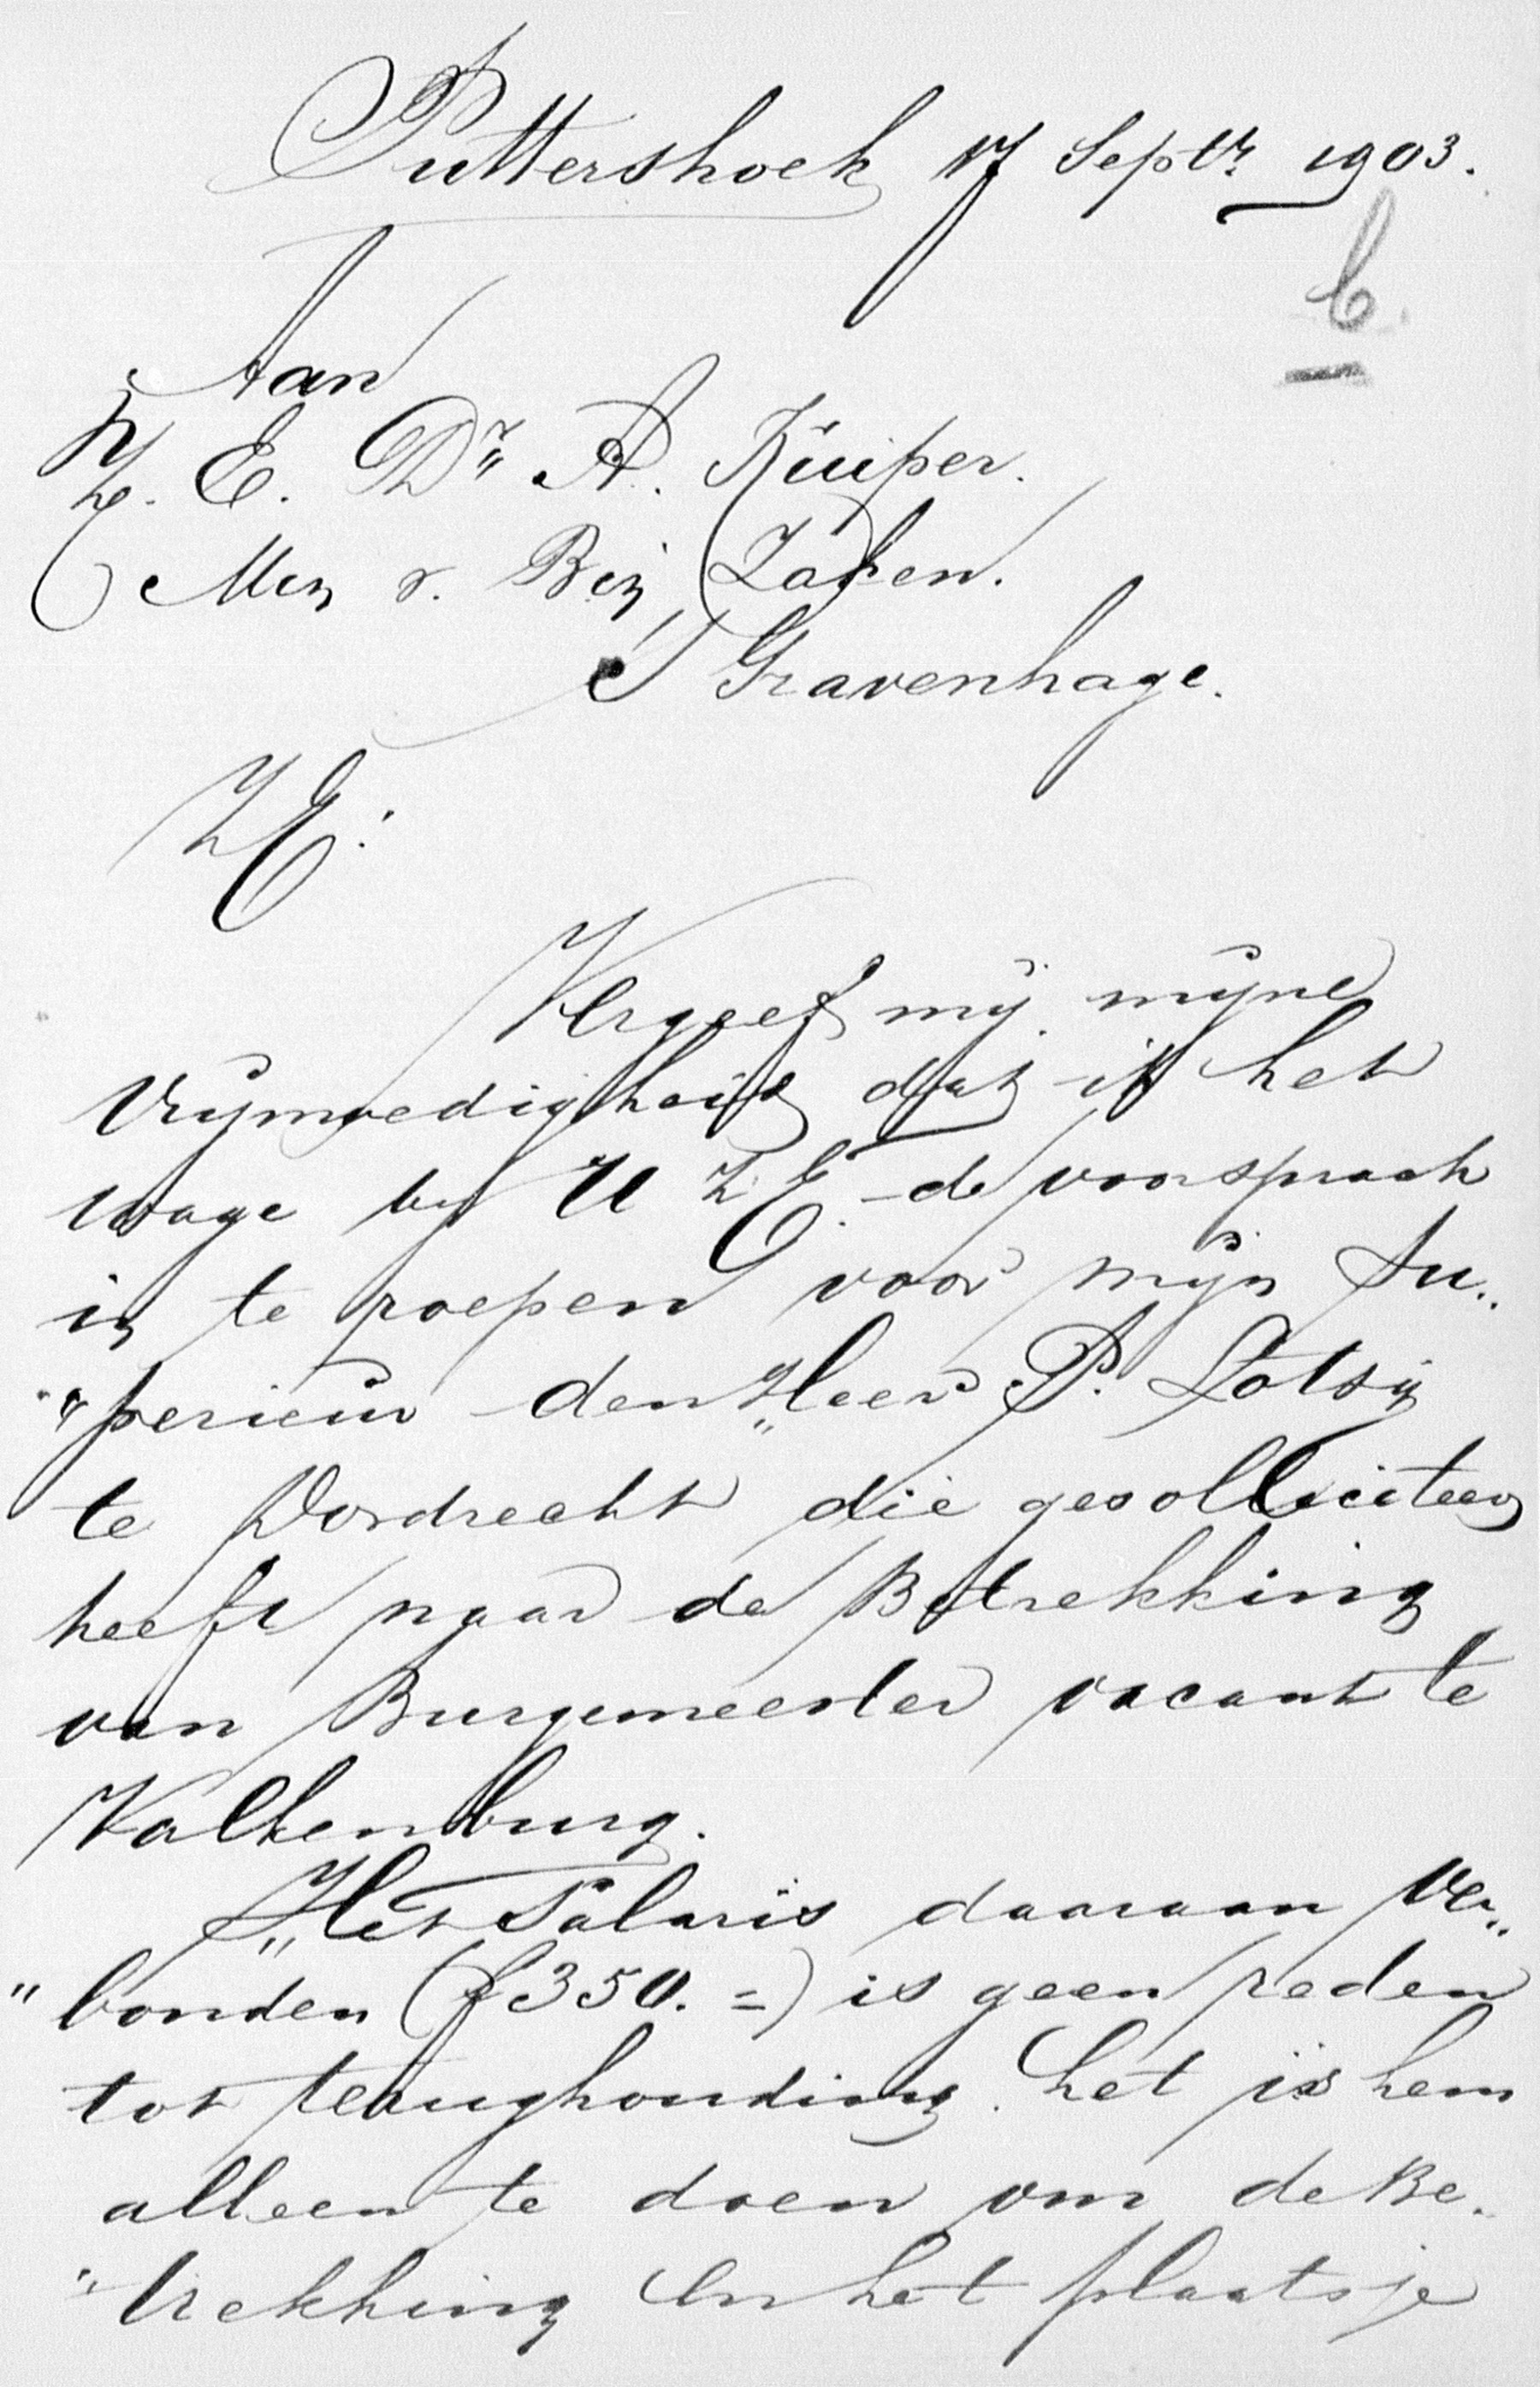 Puttershoek 17 Septr 1903.
b.
Aan
Z. E. Dr A. Kuiper.
Min v. Bin Zaken.
S Gravenhage.
ZE:
Vergeef mij mijne
Vrijmoedigheid dat ik het
wage bij U Z.E. de voorspraak
in te roepen voor mijn Su„
„perieur den Heer P. Lotsij
te Dordrecht die gesolliciteerd
heeft naar de Betrekking
van Burgemeester vacant te
Valkenburg.
Het Salaris daaraan ver„
"bonden (f 350.=) is geen reden
tot terughouding. het is hem
alleen te doen om de Be„
"trekking en het plaatsje